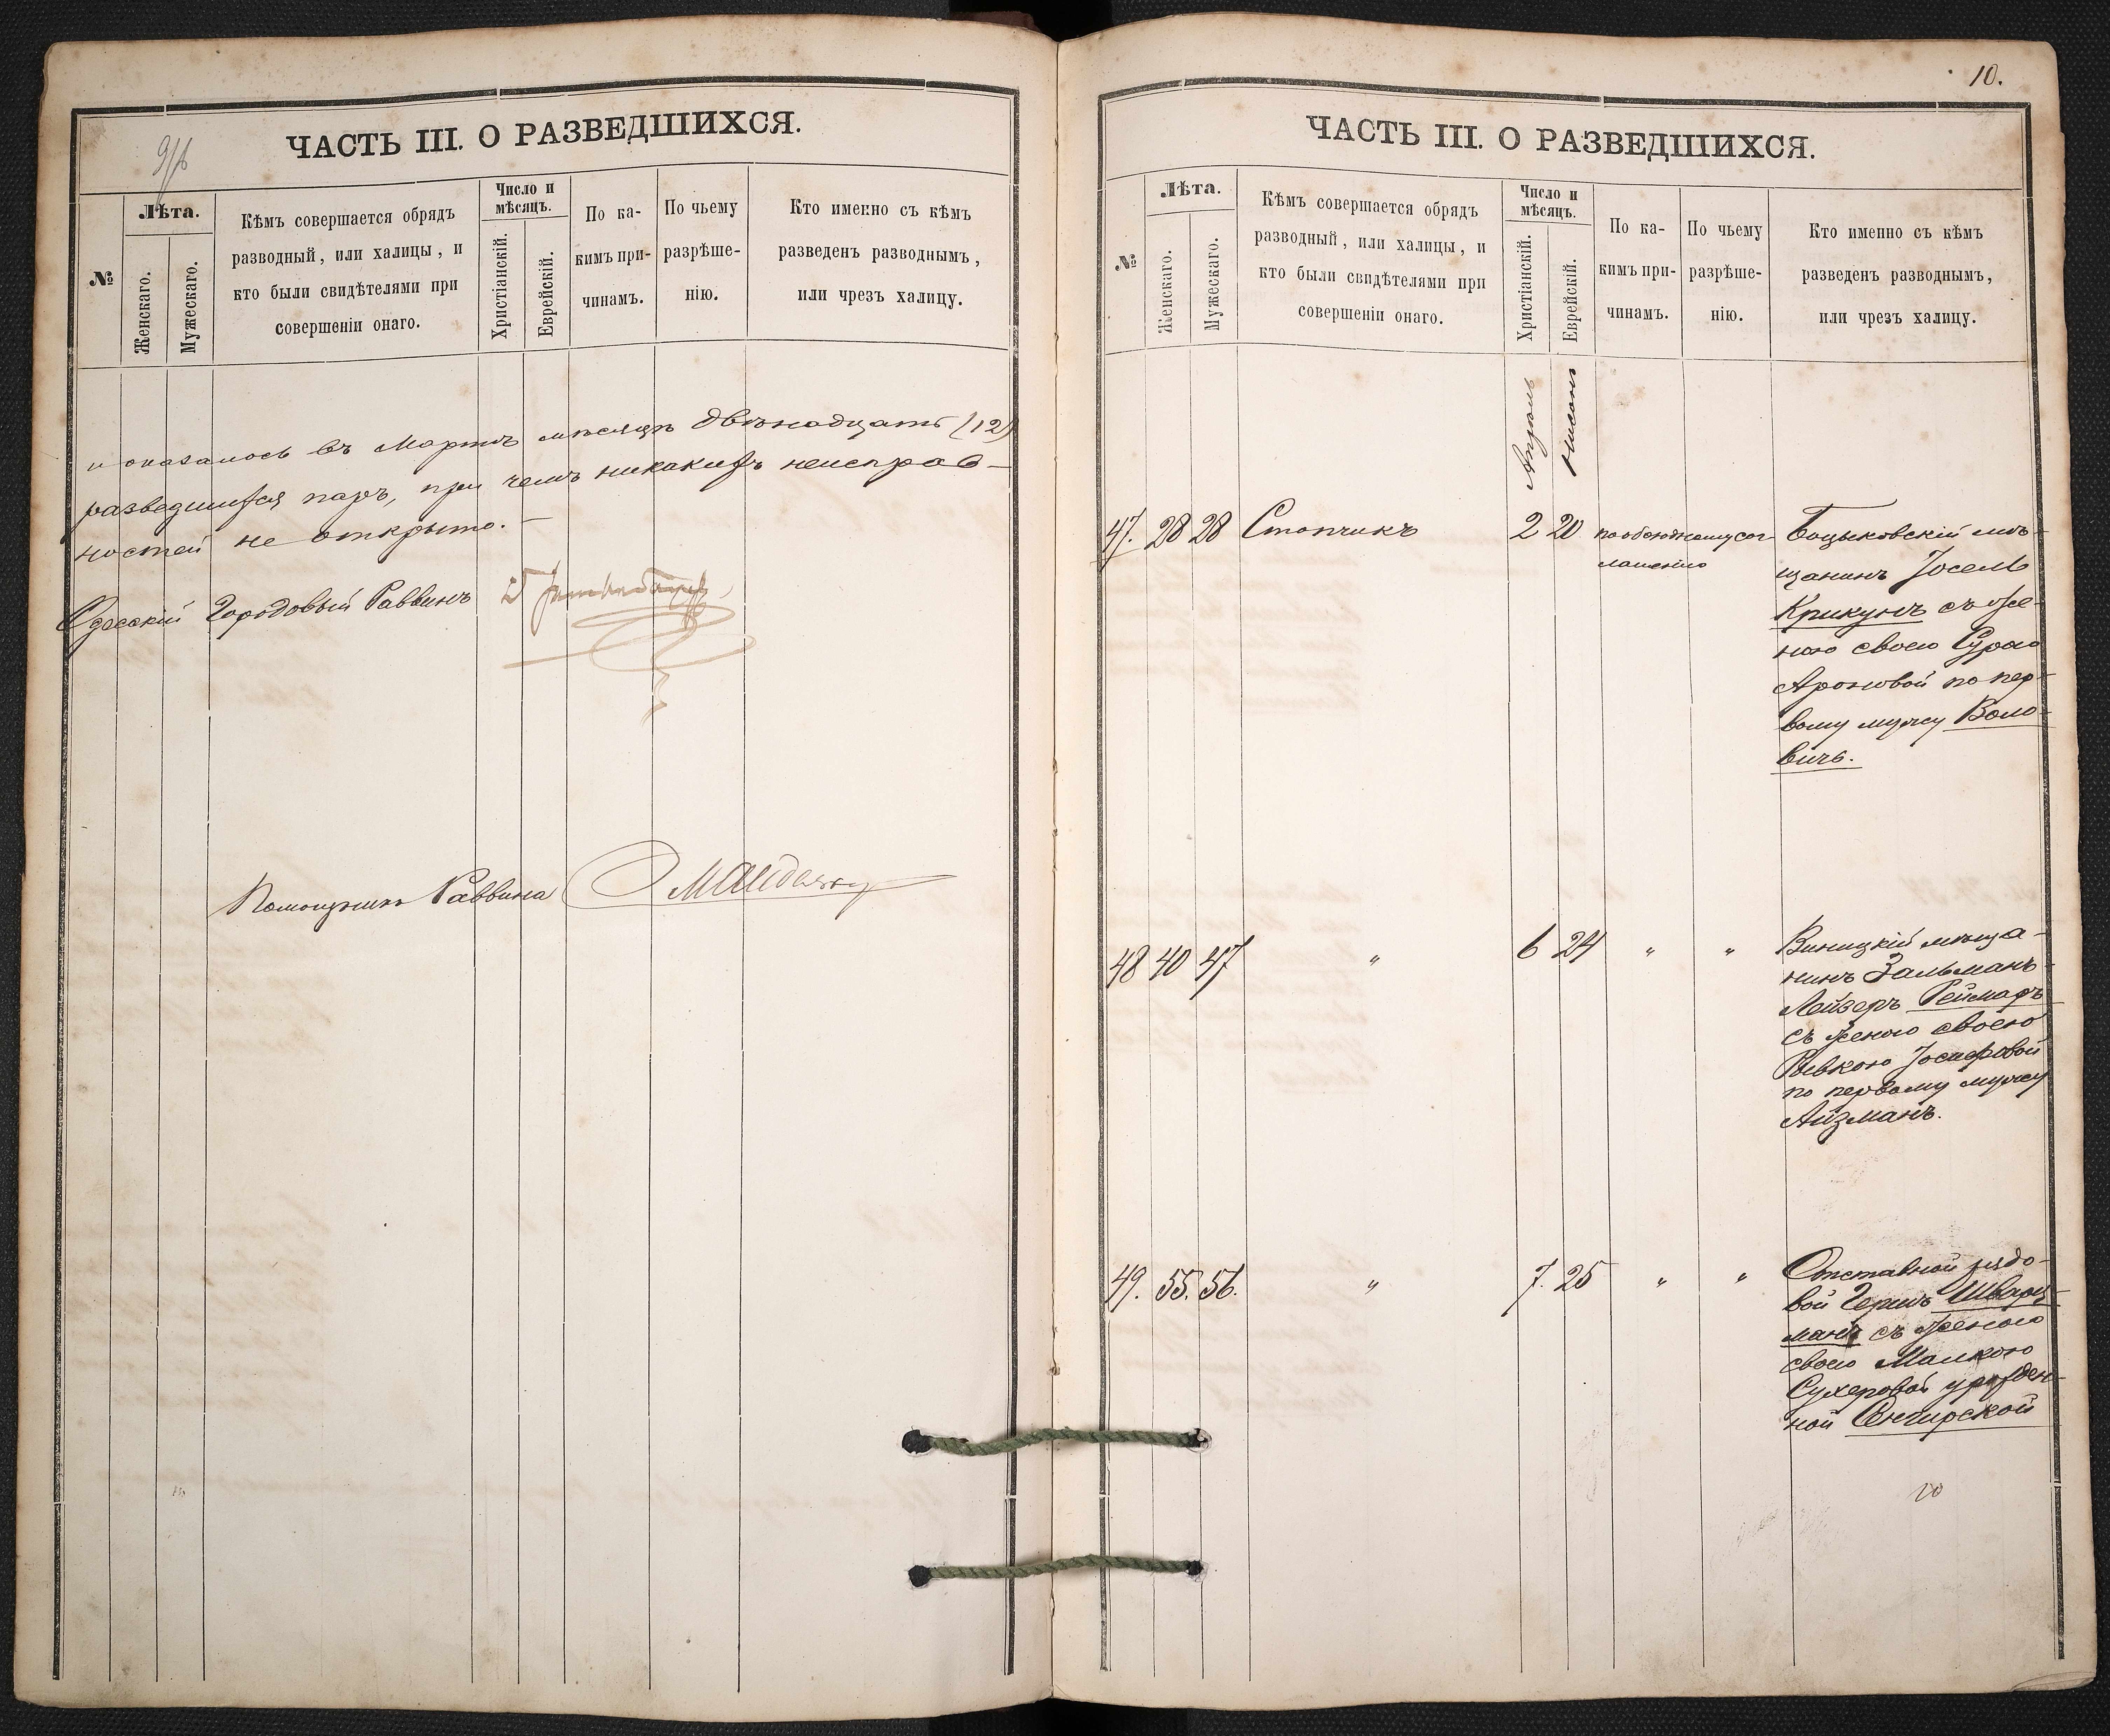 ЧАСТЬ III. О РАЗВЕДШИХСЯ.
№
Лѣта.
Женскаго.
Мужескаго.
Кѣмъ совершается обрядъ
разводный, или халицы, и
кто были свидѣтелями при
совершеніи онаго.
Число и
мѣсяцъ.
Христіанскій.
Еврейскій.
По ка-
кимъ при-
чинамъ.
По чьему
разрѣше-
нію.
Кто именно съ кѣмъ
разведенъ разводнымъ,
или чрезъ халицу.
и оказалось въ Мартѣ мѣсяцѣ двѣнадцать (12)
разведшихся паръ, при чемъ никакихъ неисправ-
ностей не открыто. —
Одесскій Городовый Раввинъ
Помощникъ Раввина
10.
ЧАСТЬ III. О РАЗВЕДШИХСЯ.
№
Лѣта.
Женскаго.
Мужескаго.
Кѣмъ совершается обрядъ
разводный, или халицы, и
кто были свидѣтелями при
совершеніи онаго.
Число и
мѣсяцъ.
Христіанскій.
Еврейскій.
По ка-
кимъ при-
чинамъ.
По чьему
разрѣше-
нію.
Кто именно съ кѣмъ
разведенъ разводнымъ,
или чрезъ халицу.
Апрѣль
Нисонъ
47. 28 28 Стопчикъ 2 20 по обоюдному сог
лашенію
мѣ-
щанинъ Іосель
Крикунъ съ же-
ною своею Сурою
Ароновой по пер-
вому мужу Воло-
вичъ.
48 40 47 " 6 24 " " Виницкій мѣща-
нинъ Зальманъ-
Лейзеръ Реймаръ
съ женою своею
Ривкою Іосифовой
по первому мужу
Айзманъ.
49. 55. 56. " 7. 25 " " Отставной рядо-
вой Гершъ Шварц-
манъ съ женою
своею Малкою
Сухеровой урожден-
ной
10